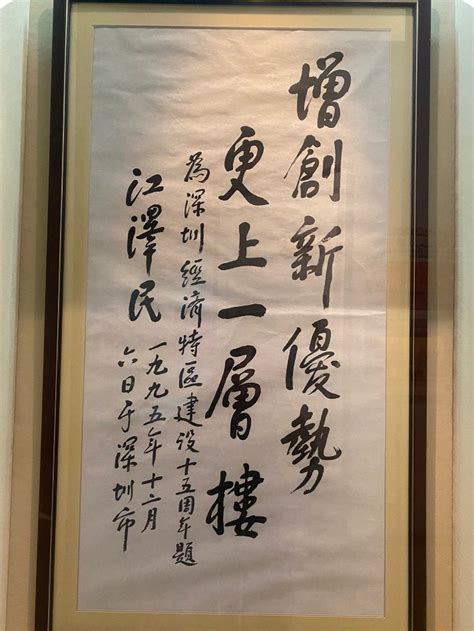 增創新優勢
更上一層樓
為深圳經濟特區建设十五周年題
江澤民
一九九五年十二月
六日于深圳市